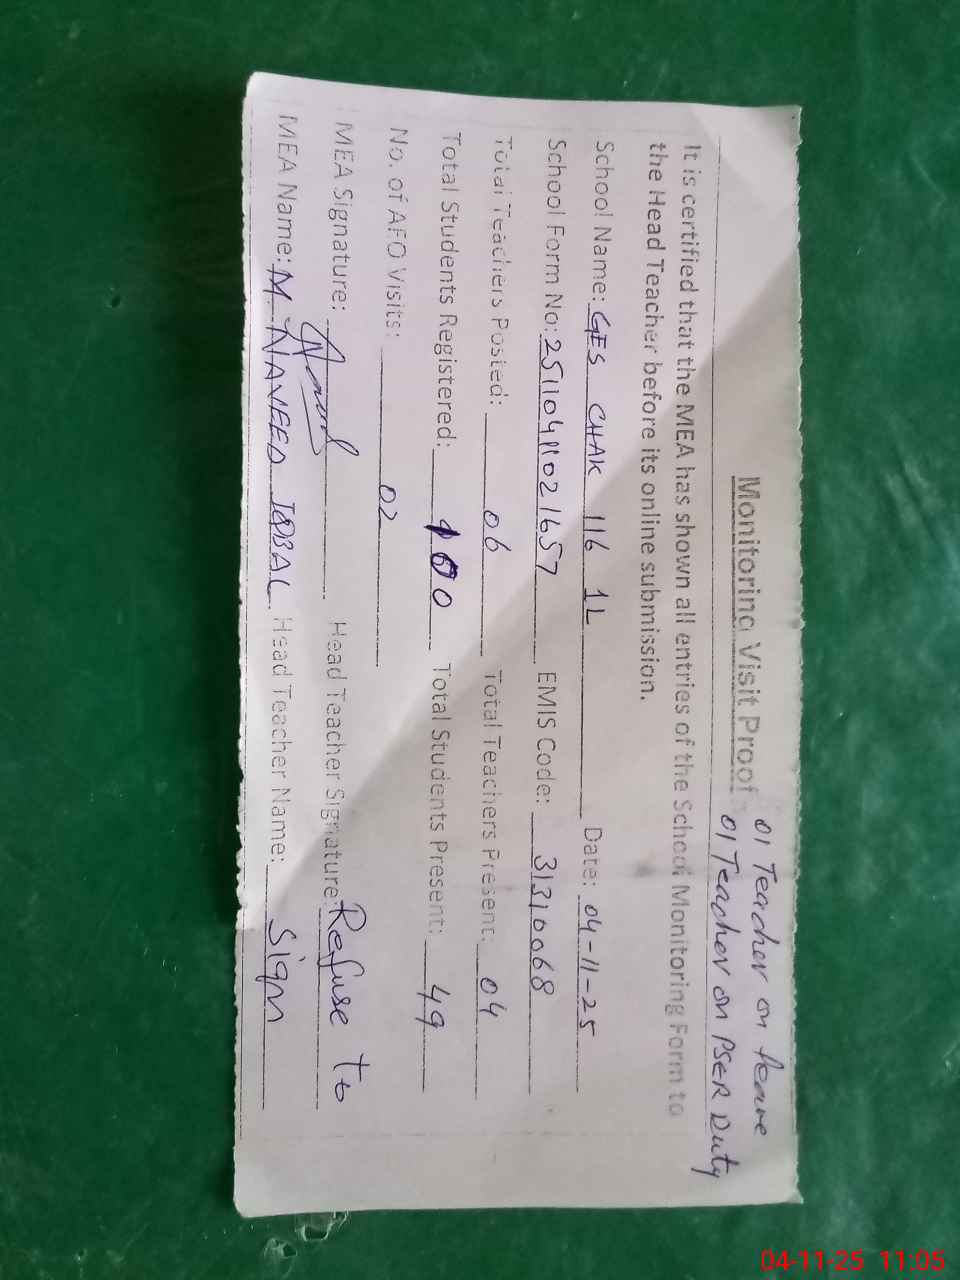 Monitoring Visit Proof
01 Teacher on leave
01 Teacher on PSER Duty
It is certified that the MEA has shown all entries of the School Monitoring Form to
the Head Teacher before its online submission.
School Name: GES CHAK 116 1L Date: 04-11-25
School Form No: 25110411021657 EMIS Code: 31310068
Total Teachers Posted: 06 Total Teachers Present: 04
Total Students Registered: 100 Total Students Present: 49
No. of AEO Visits: 02
MEA Signature: Head Teacher Signature: Refuse to
MEA Name: M NAVEED IQBAL Head Teacher Name: Sign
04-11-25 11:05